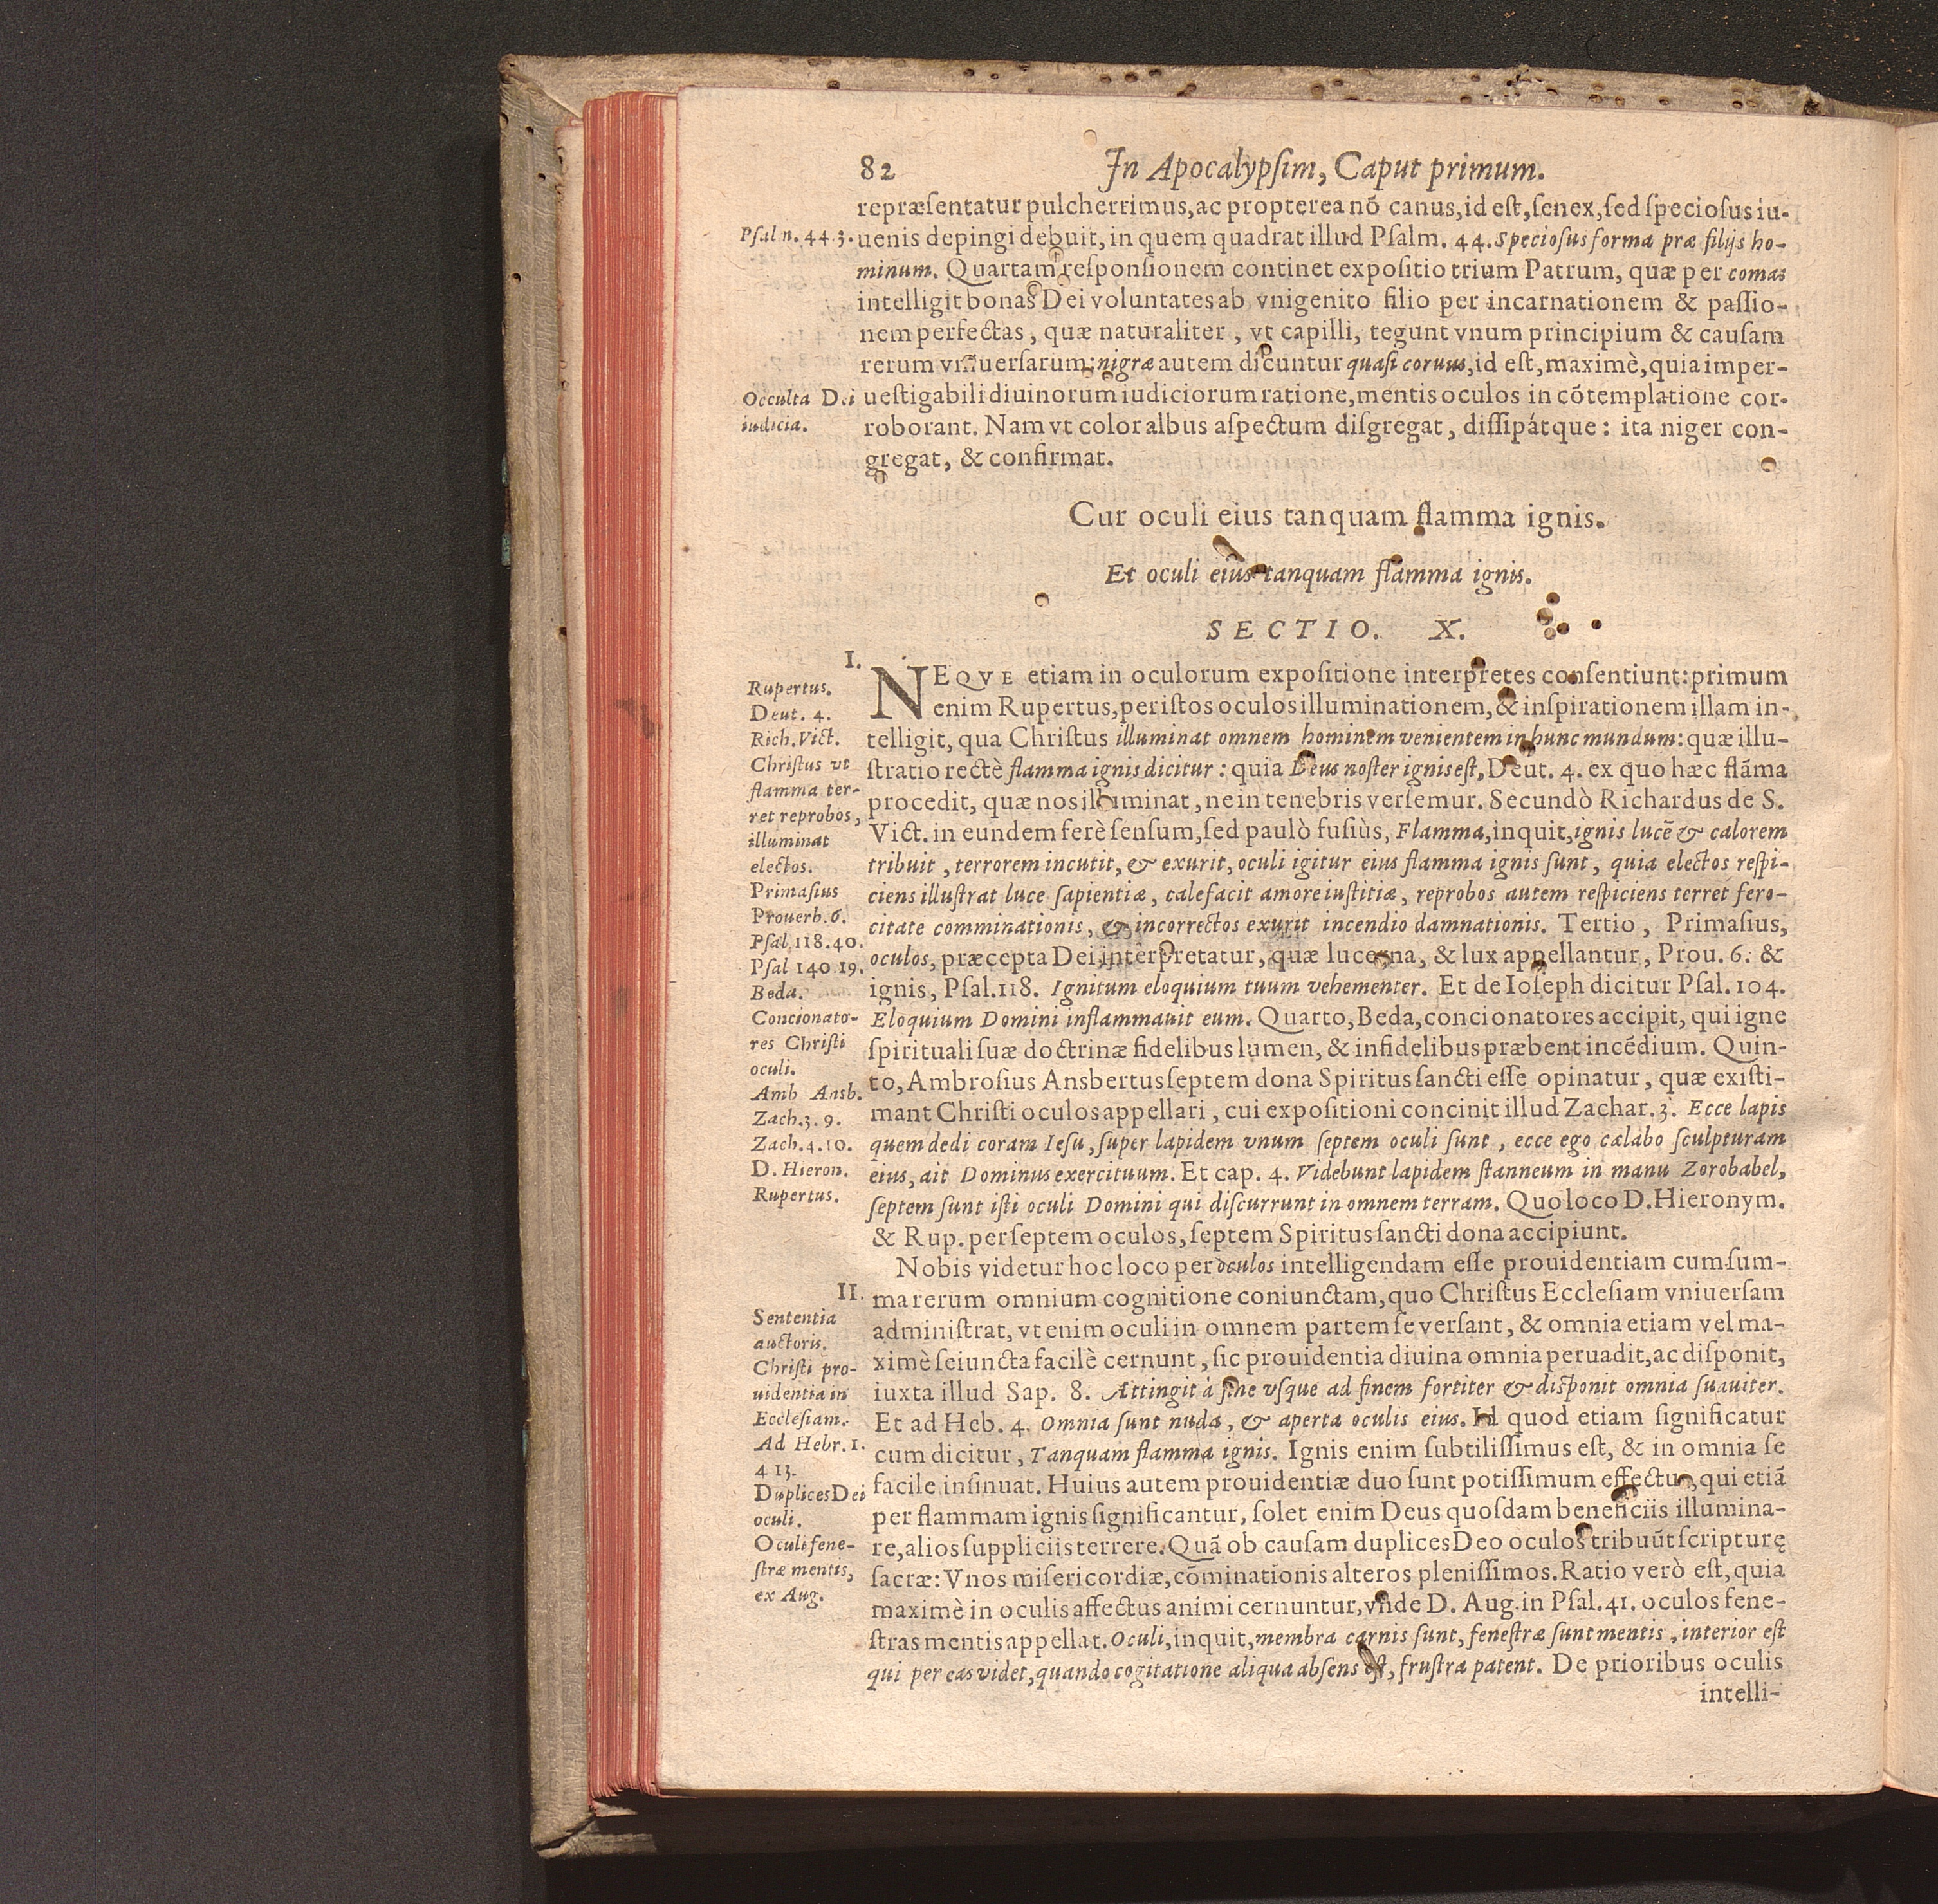 82
In Apocalypsim, Caput primum.
repræſentatur pulcherrimus, ac propterea nõ canus, id eſt, ſenex, ſed ſpecioſus iu-
Pſal n. 44 3.
uenis depingi debuit, in quem quadrat illud Pſalm. 44. Specioſus forma præ filijs ho-
minum. Quartam reſponſionem continet expoſitio trium Patrum, quæ per comas
intelligit bonas Dei voluntates ab vnigenito filio per incarnationem & paſſio-
nem perfectas, quæ naturaliter, vt capilli, tegunt vnum principium & cauſam
rerum vniuerſarum: nigræ autem dicuntur quaſi coruus, id eſt, maximè, quia imper-
Occulta Dei
iudicia.
ueſtigabili diuinorum iudiciorum ratione, mentis oculos in cõtemplatione cor-
roborant. Nam vt color albus aſpectum diſgregat, diſſipátque: ita niger con-
gregat, & confirmat.
Cur oculi eius tanquam flamma ignis.
Et oculi eius tanquam flamma ignis.
SECTIO. X.
I.
Rupertus.
Deut. 4.
Rich. Vict.
Chriſtus vt
flamma ter-
ret reprobos,
illuminat
electos.
Primaſius
Prouerb. 6.
Pſal, 118. 40.
Pſal 140. 19.
Beda.
Concionato-
res Chriſti
oculi.
Amb Ansb.
Zach. 3. 9.
Zach. 4. 10.
D. Hieron.
Rupertus.
NEQVE etiam in oculorum expoſitione interpretes conſentiunt: primum
enim Rupertus, per iſtos oculos illuminationem, & inſpirationem illam in-
telligit, qua Chriſtus illuminat omnem hominem venientem in hunc mundum: quæ illu-
ſtratio rectè flamma ignis dicitur: quia Deus noſter ignis eſt, Deut. 4. ex quo hæc flãma
procedit, quæ nos illuminat, ne in tenebris verſemur. Secundò Richardus de S.
Vict. in eundem ferè ſenſum, ſed paulò fuſiùs, Flamma, inquit, ignis lucẽ & calorem
tribuit, terrorem incutit, & exurit, oculi igitur eius flamma ignis ſunt, quia electos reſpi-
ciens illuſtrat luce ſapientiæ, calefacit amore iuſtitiæ, reprobos autem reſpiciens terret fero-
citate comminationis, & incorrectos exurit incendio damnationis. Tertio, Primaſius,
oculos, præcepta Dei, interpretatur, quæ lucerna, & lux appellantur, Prou. 6. &
ignis, Pſal. 118. Ignitum eloquium tuum vehementer. Et de Ioſeph dicitur Pſal. 104.
Eloquium Domini inflammauit eum. Quarto, Beda, concionatores accipit, qui igne
ſpirituali ſuæ doctrinæ fidelibus lumen, & infidelibus præbent incẽdium. Quin-
to, Ambroſius Ansbertus ſeptem dona Spiritus ſancti eſſe opinatur, quæ exiſti-
mant Chriſti oculos appellari, cui expoſitioni concinit illud Zachar. 3. Ecce lapis
quem dedi coram Ieſu, ſuper lapidem vnum ſeptem oculi ſunt, ecce ego cælabo ſculpturam
eius, ait Dominus exercituum. Et cap. 4. Videbunt lapidem ſtanneum in manu Zorobabel,
ſeptem ſunt iſti oculi Domini qui diſcurrunt in omnem terram. Quo loco D. Hieronym.
& Rup. per ſeptem oculos, ſeptem Spiritus ſancti dona accipiunt.
II.
Sententia
auctoris.
Chriſti pro-
uidentia in
Eccleſiam.
Ad Hebr. 1.
4 13.
Duplices Dei
oculi.
Oculi fene-
ſtræ mentis,
ex Aug.
Nobis videtur hoc loco per oculos intelligendam eſſe prouidentiam cum ſum-
ma rerum omnium cognitione coniunctam, quo Chriſtus Eccleſiam vniuerſam
adminiſtrat, vt enim oculi in omnem partem ſe verſant, & omnia etiam vel ma-
ximè ſeiuncta facilè cernunt, ſic prouidentia diuina omnia peruadit, ac diſponit,
iuxta illud Sap. 8. Attingit à fine vſque ad finem fortiter & diſponit omnia ſuauiter.
Et ad Heb. 4. Omnia ſunt nuda, & aperta oculis eius. Id quod etiam ſignificatur
cum dicitur, Tanquam flamma ignis. Ignis enim ſubtiliſſimus eſt, & in omnia ſe
facile inſinuat. Huius autem prouidentiæ duo ſunt potiſſimum effectus, qui etiã
per flammam ignis ſignificantur, ſolet enim Deus quoſdam beneficiis illumina-
re, alios ſuppliciis terrere. Quã ob cauſam duplices Deo oculos tribuũt ſcripturę
ſacræ: Vnos miſericordiæ, cõminationis alteros pleniſſimos. Ratio verò eſt, quia
maximè in oculis affectus animi cernuntur, vnde D. Aug. in Pſal. 41. oculos fene-
ſtras mentis appellat. Oculi, inquit, membra carnis ſunt, feneſtræ ſunt mentis, interior eſt
qui per eas videt, quando cogitatione aliqua abſens eſt, fruſtra patent. De prioribus oculis
intelli-